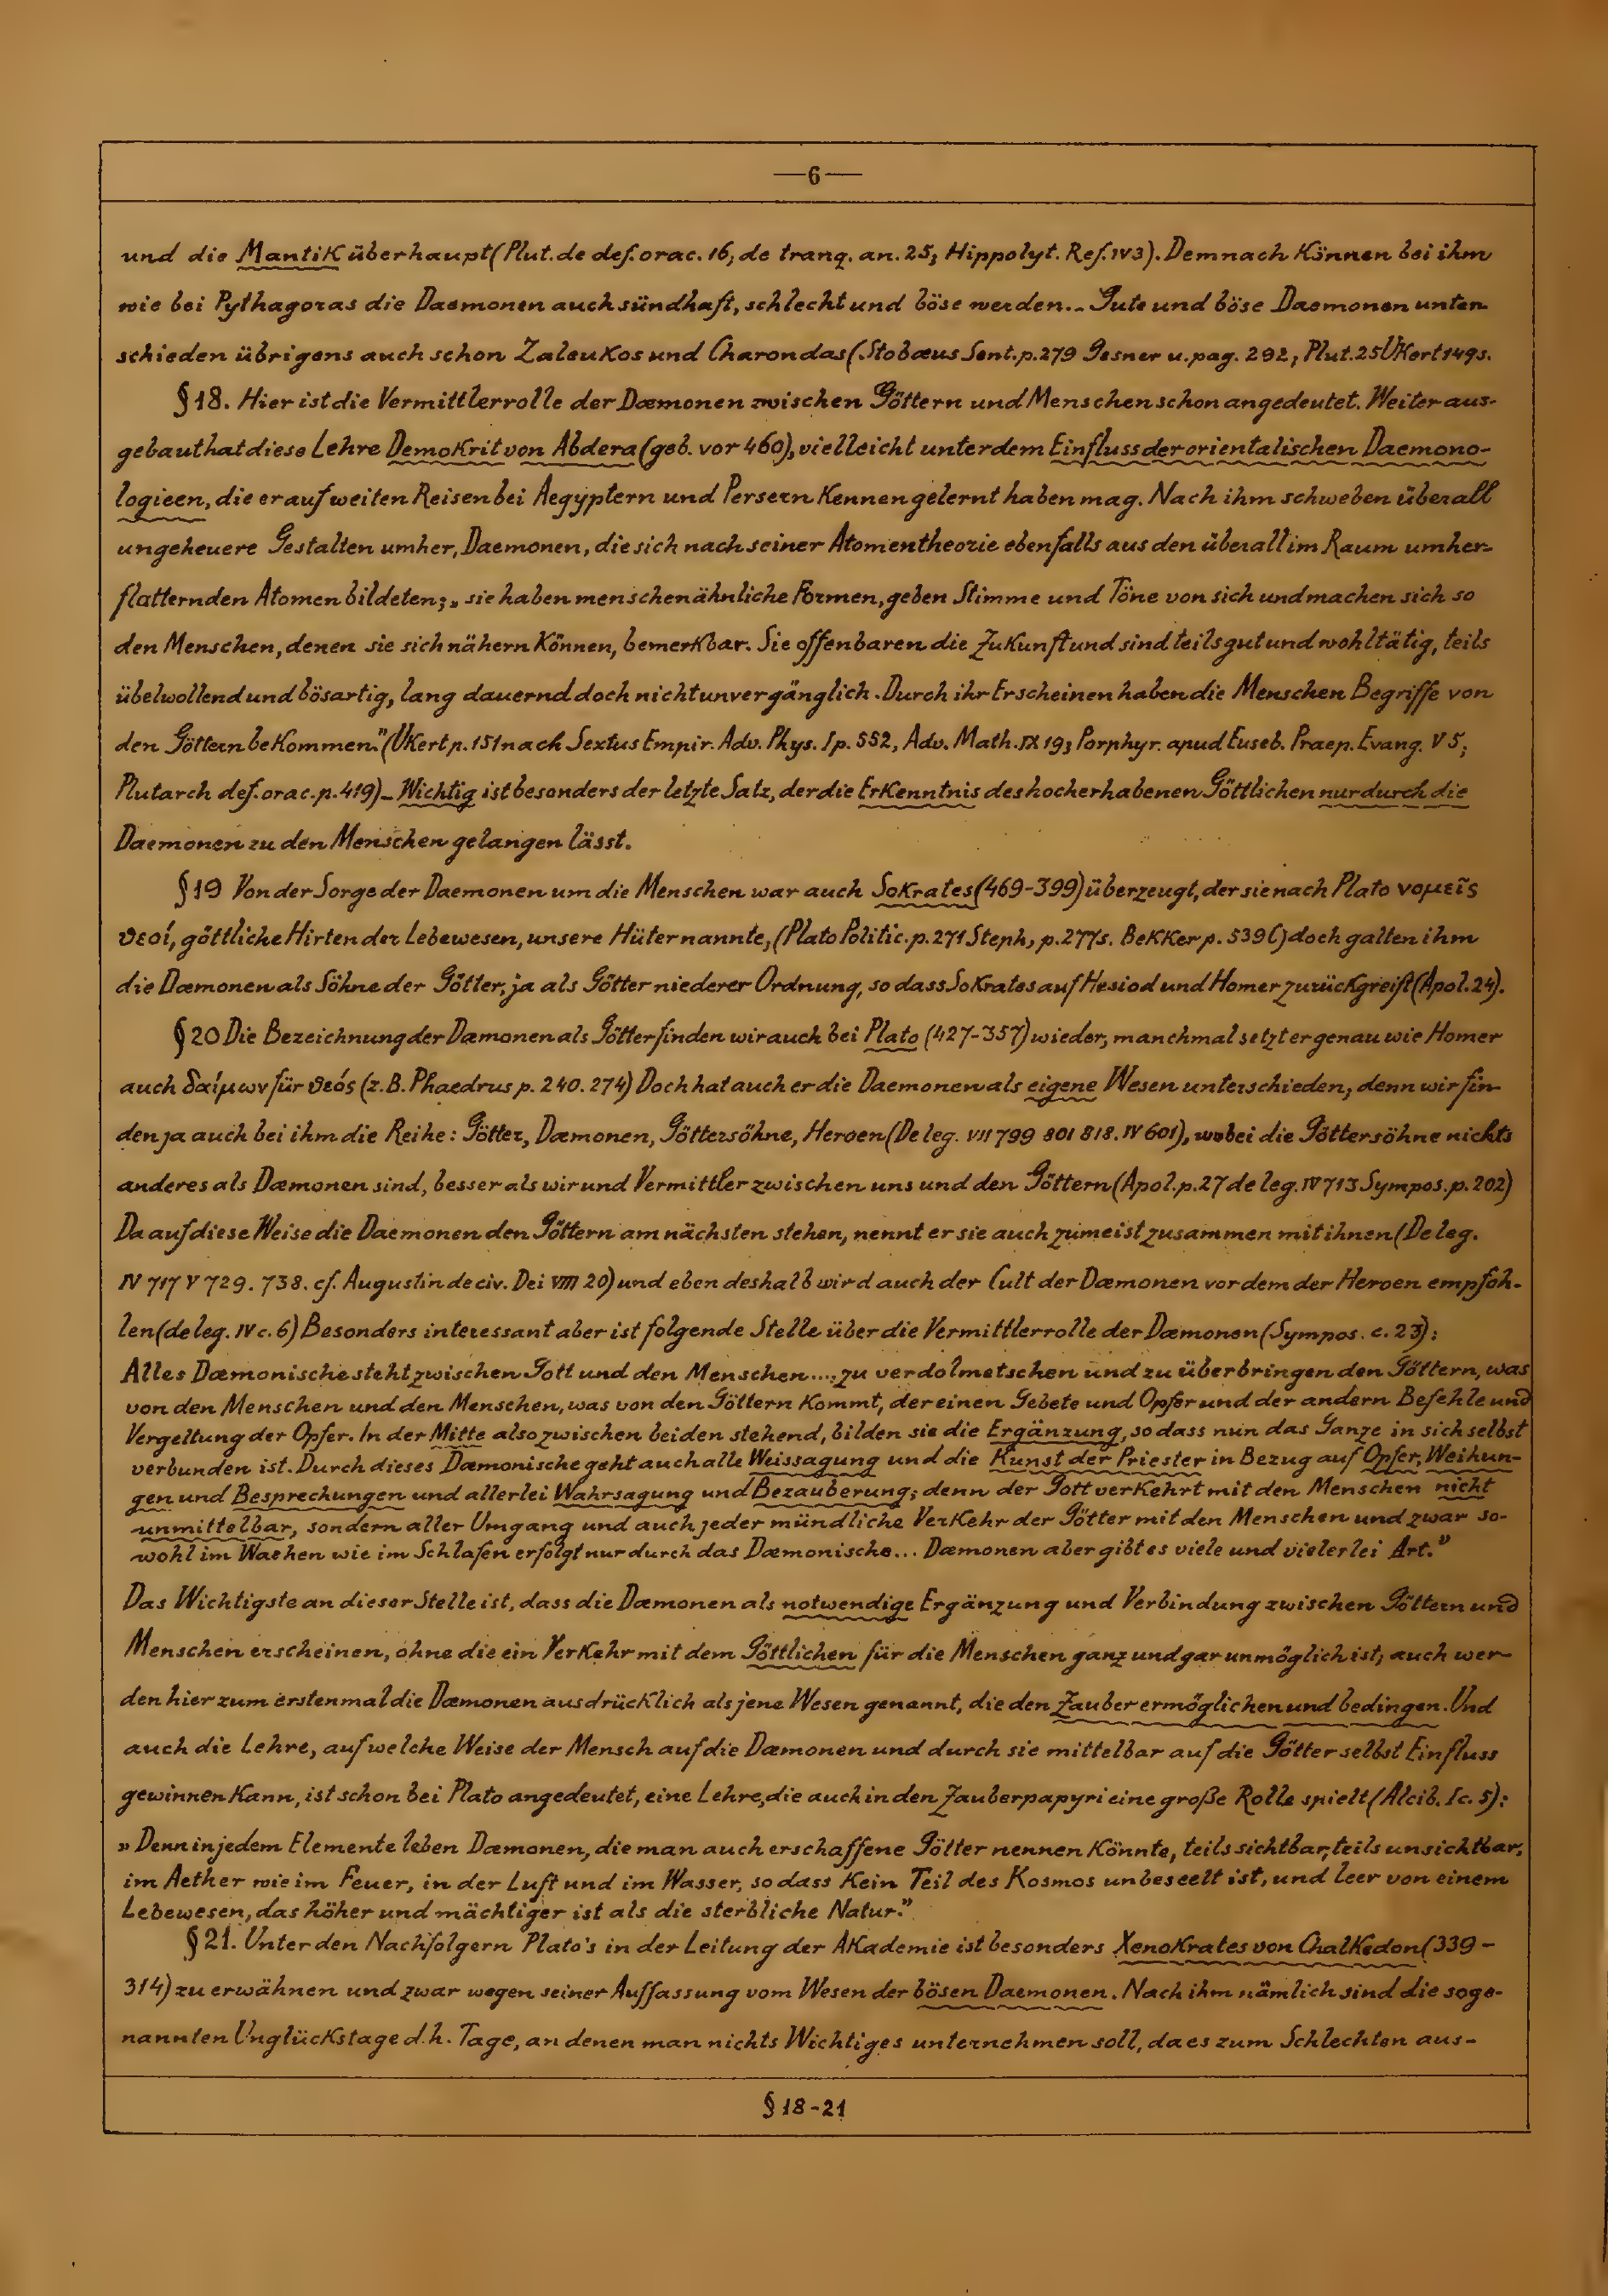 —6—
und die Mantik überhaupt (Plut. de def. orac. 16; de tranq. an. 25; Hippolyt. Ref. IV 3). Demnach können bei ihm
wie bei Pythagoras die Daemonen auch sündhaft, schlecht und böse werden.. Gute und böse Daemonen unter-
schieden übrigens auch schon Zaleukos und Charondas (Stobæus Sent. p. 279 Gesner u. pag. 292, Plut. 25 Ukert 149s.
§ 18. Hier ist die Vermittlerrolle der Dæmonen zwischen Göttern und Menschen schon angedeutet. Weiter aus-
gebaut hat diese Lehre Demokrit von Abdera (geb. vor 460), vielleicht unter dem Einfluss der orientalischen Daemono-
logieen, die er auf weiten Reisen bei Aegyptern und Persern kennen gelernt haben mag. Nach ihm schweben überall
ungeheuere Gestalten umher, Daemonen, die sich nach seiner Atomentheorie ebenfalls aus den überall im Raum umher-
flatternden Atomen bildeten; „sie haben menschenähnliche Formen, geben Stimme und Töne von sich und machen sich so
den Menschen, denen sie sich nähern können, bemerkbar. Sie offenbaren die Zukunft und sind teils gut und wohltätig, teils
übelwollend und bösartig, lang dauernd doch nicht unvergänglich. Durch ihr Erscheinen haben die Menschen Begriffe von
den Göttern bekommen." (Ukert p. 151 nach Sextus Empir. Adv. Phys. I p. 552, Adv. Math. IX 19; Porphyr. apud Euseb. Praep. Evang. V 5;
Plutarch def. orac. p. 419) – Wichtig ist besonders der letzte Satz, der die Erkenntnis des hocherhabenen Göttlichen nur durch die
Daemonen zu den Menschen gelangen lässt.
§ 19 Von der Sorge der Daemonen um die Menschen war auch Sokrates (469-399) überzeugt, der sie nach Plato νομεῖς
θεοί, göttliche Hirten der Lebewesen, unsere Hüter nannte, (Plato Politic. p. 271 Steph, p. 277s. Bekker p. 539 C) doch galten ihm
die Dæmonen als Söhne der Götter, ja als Götter niederer Ordnung, so dass Sokrates auf Hesiod und Homer zurückgreift (Apol. 24).
§ 20 Die Bezeichnung der Dæmonen als Götter finden wir auch bei Plato (427-357) wieder, manchmal setzt er genau wie Homer
auch δαίμων für θεός (z.B. Phaedrus p. 240. 274) Doch hat auch er die Daemonen als eigene Wesen unterschieden, denn wir fin-
den ja auch bei ihm die Reihe: Götter, Dæmonen, Göttersöhne, Heroen (De leg. VII 799 801 818. IV 601), wobei die Göttersöhne nichts
anderes als Dæmonen sind, besser als wir und Vermittler zwischen uns und den Göttern (Apol. p. 27 de leg. IV 713 Sympos. p. 202)
Da auf diese Weise die Daemonen den Göttern am nächsten stehen, nennt er sie auch zumeist zusammen mit ihnen (De leg.
IV 717 V 729. 738. cf. Augustin de civ. Dei VIII 20) und eben deshalb wird auch der Cult der Dæmonen vor dem der Heroen empfoh-
len (de leg. IV c. 6) Besonders interessant aber ist folgende Stelle über die Vermittlerrolle der Dæmonen (Sympos. c. 23):
Alles Dæmonische steht zwischen Gott und den Menschen...., zu verdolmetschen und zu überbringen den Göttern, was
von den Menschen und den Menschen, was von den Göttern kommt, der einen Gebete und Opfer und der andern Befehle und
Vergeltung der Opfer. In der Mitte also zwischen beiden stehend, bilden sie die Ergänzung, so dass nun das Ganze in sich selbst
verbunden ist. Durch dieses Dæmonische geht auch alle Weissagung und die Kunst der Priester in Bezug auf Opfer, Weihun-
gen und Besprechungen und allerlei Wahrsagung und Bezauberung; denn der Gott verkehrt mit den Menschen nicht
unmittelbar, sondern aller Umgang und auch jeder mündliche Verkehr der Götter mit den Menschen und zwar so-
wohl im Wachen wie im Schlafen erfolgt nur durch das Dæmonische... Dæmonen aber gibt es viele und vielerlei Art."
Das Wichtigste an dieser Stelle ist, dass die Dæmonen als notwendige Ergänzung und Verbindung zwischen Göttern und
Menschen erscheinen, ohne die ein Verkehr mit dem Göttlichen für die Menschen ganz und gar unmöglich ist; auch wer-
den hier zum erstenmal die Dæmonen ausdrücklich als jene Wesen genannt, die den Zauber ermöglichen und bedingen. Und
auch die Lehre, auf welche Weise der Mensch auf die Dæmonen und durch sie mittelbar auf die Götter selbst Einfluss
gewinnen kann, ist schon bei Plato angedeutet, eine Lehre, die auch in den Zauberpapyri eine große Rolle spielt (Alcib. I c. 5):
„Denn in jedem Elemente leben Dæmonen, die man auch erschaffene Götter nennen könnte, teils sichtbar, teils unsichtbar,
im Aether wie im Feuer, in der Luft und im Wasser, so dass kein Teil des Kosmos unbeseelt ist, und leer von einem
Lebewesen, das höher und mächtiger ist als die sterbliche Natur."
§ 21. Unter den Nachfolgern Plato's in der Leitung der Akademie ist besonders Xenokrates von Chalkedon (339-
314) zu erwähnen und zwar wegen seiner Auffassung vom Wesen der bösen Daemonen. Nach ihm nämlich sind die soge-
nannten Unglückstage d.h. Tage, an denen man nichts Wichtiges unternehmen soll, da es zum Schlechten aus-
§ 18-21